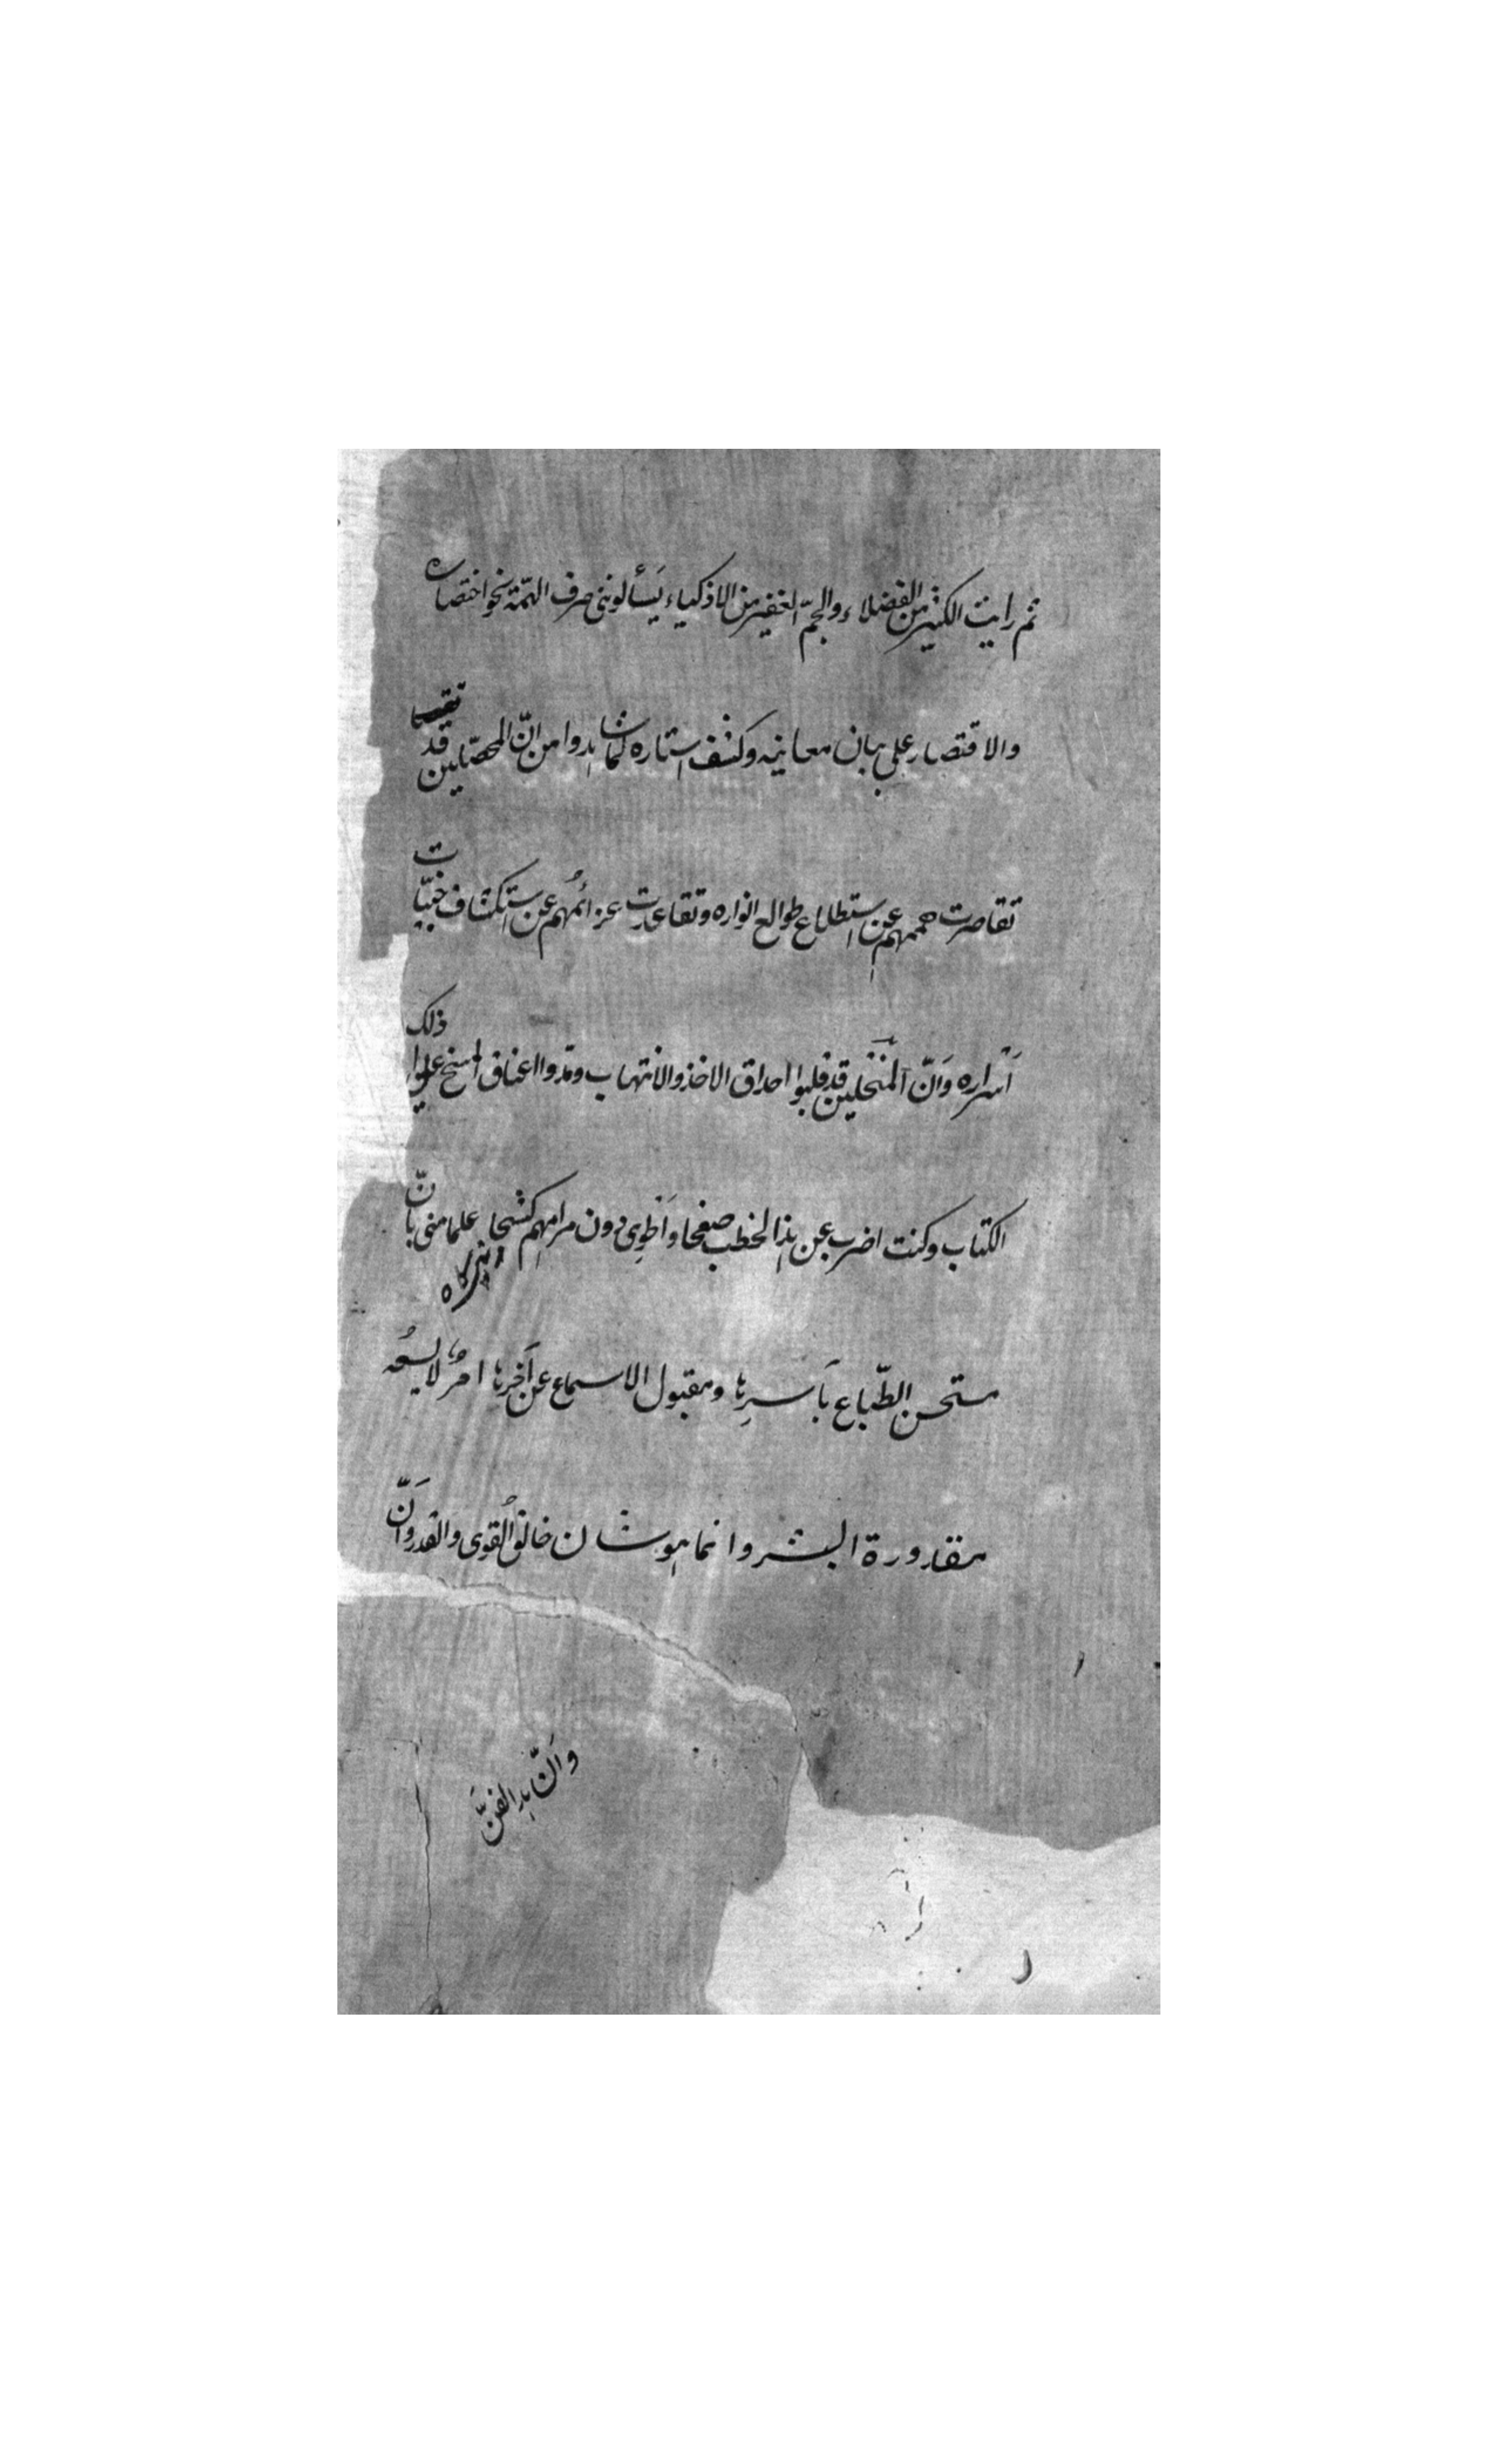 ثم رايت الكثير من الفضلاء والجمّ الغفير من الاذكياء يَسألونني صرف الهمّة نحو اختصاره
والاقتصار على بيان معانيه وكشف استاره لما شاهدوا من انّ المحصّلين قد
تقاصرت هممهم عن استطلاع طوالع انواره وتقاعدت عزائمُهم عن استكشاف خبيّات
اَسْراره وَانّ المنتحلين قد قلبوا احداق الاخذ والانتهاب ومدّوا اعناق المسخ على ذلك
الكتاب وكنت اضرب عن هذا الخطب صفحا وَاَطْوِى دون مرامهم كشحا علما منى بانّ
مستحسن الطّباع بأسرِها ومقبول الاسماع عن آخرِها امرٌ لا يسعُه
مقدورة البشر وانما هو شان خالقُ القوى والقدر وَانّ
وَانّ هذا الفنّ